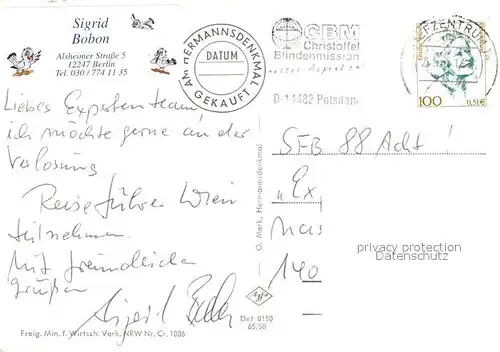 Sigrid
Bobon
Alsheimer Straße 5
12247 Berlin
Tel. 030 / 774 11 35
AM HERMANNSDENKMAL
DATUM
GEKAUFT
CBM
Christoffel
Blindenmission
D-14482 Potsdam
EFZENTRUM
100
0,51€
Liebes Expertenteam!
ich möchte gerne an der
Verlosung
Reiseführer Wien
teilnehmen.
Mit freundlichen
Grüßen
Sigrid Bobon
SFB 88 Acht!
"Ex
Mas
140
privacy protection
Datenschutz
O. Merk, Hermannsdenkmal
Det 0150
65/50
Freig. Min. f. Wirtsch. Verk. NRW Nr. Cr. 1006